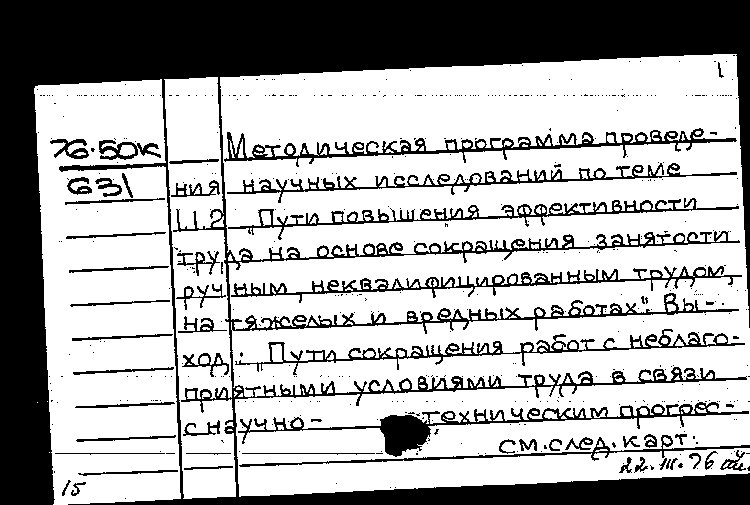 1
76.50к Методическая программа проведе-
631 ния научных исследований по теме
1.1.2 „Пути повышения эффективности
труда на основе сокращения занятости
ручным, неквалифицированным трудом,
на тяжелых и вредных работах". Вы-
ход.: „Пути сокращения работ с неблаго-
приятными условиями труда в связи
с научно- техническим прогрес-
см. след. карт.
22.III.76
15